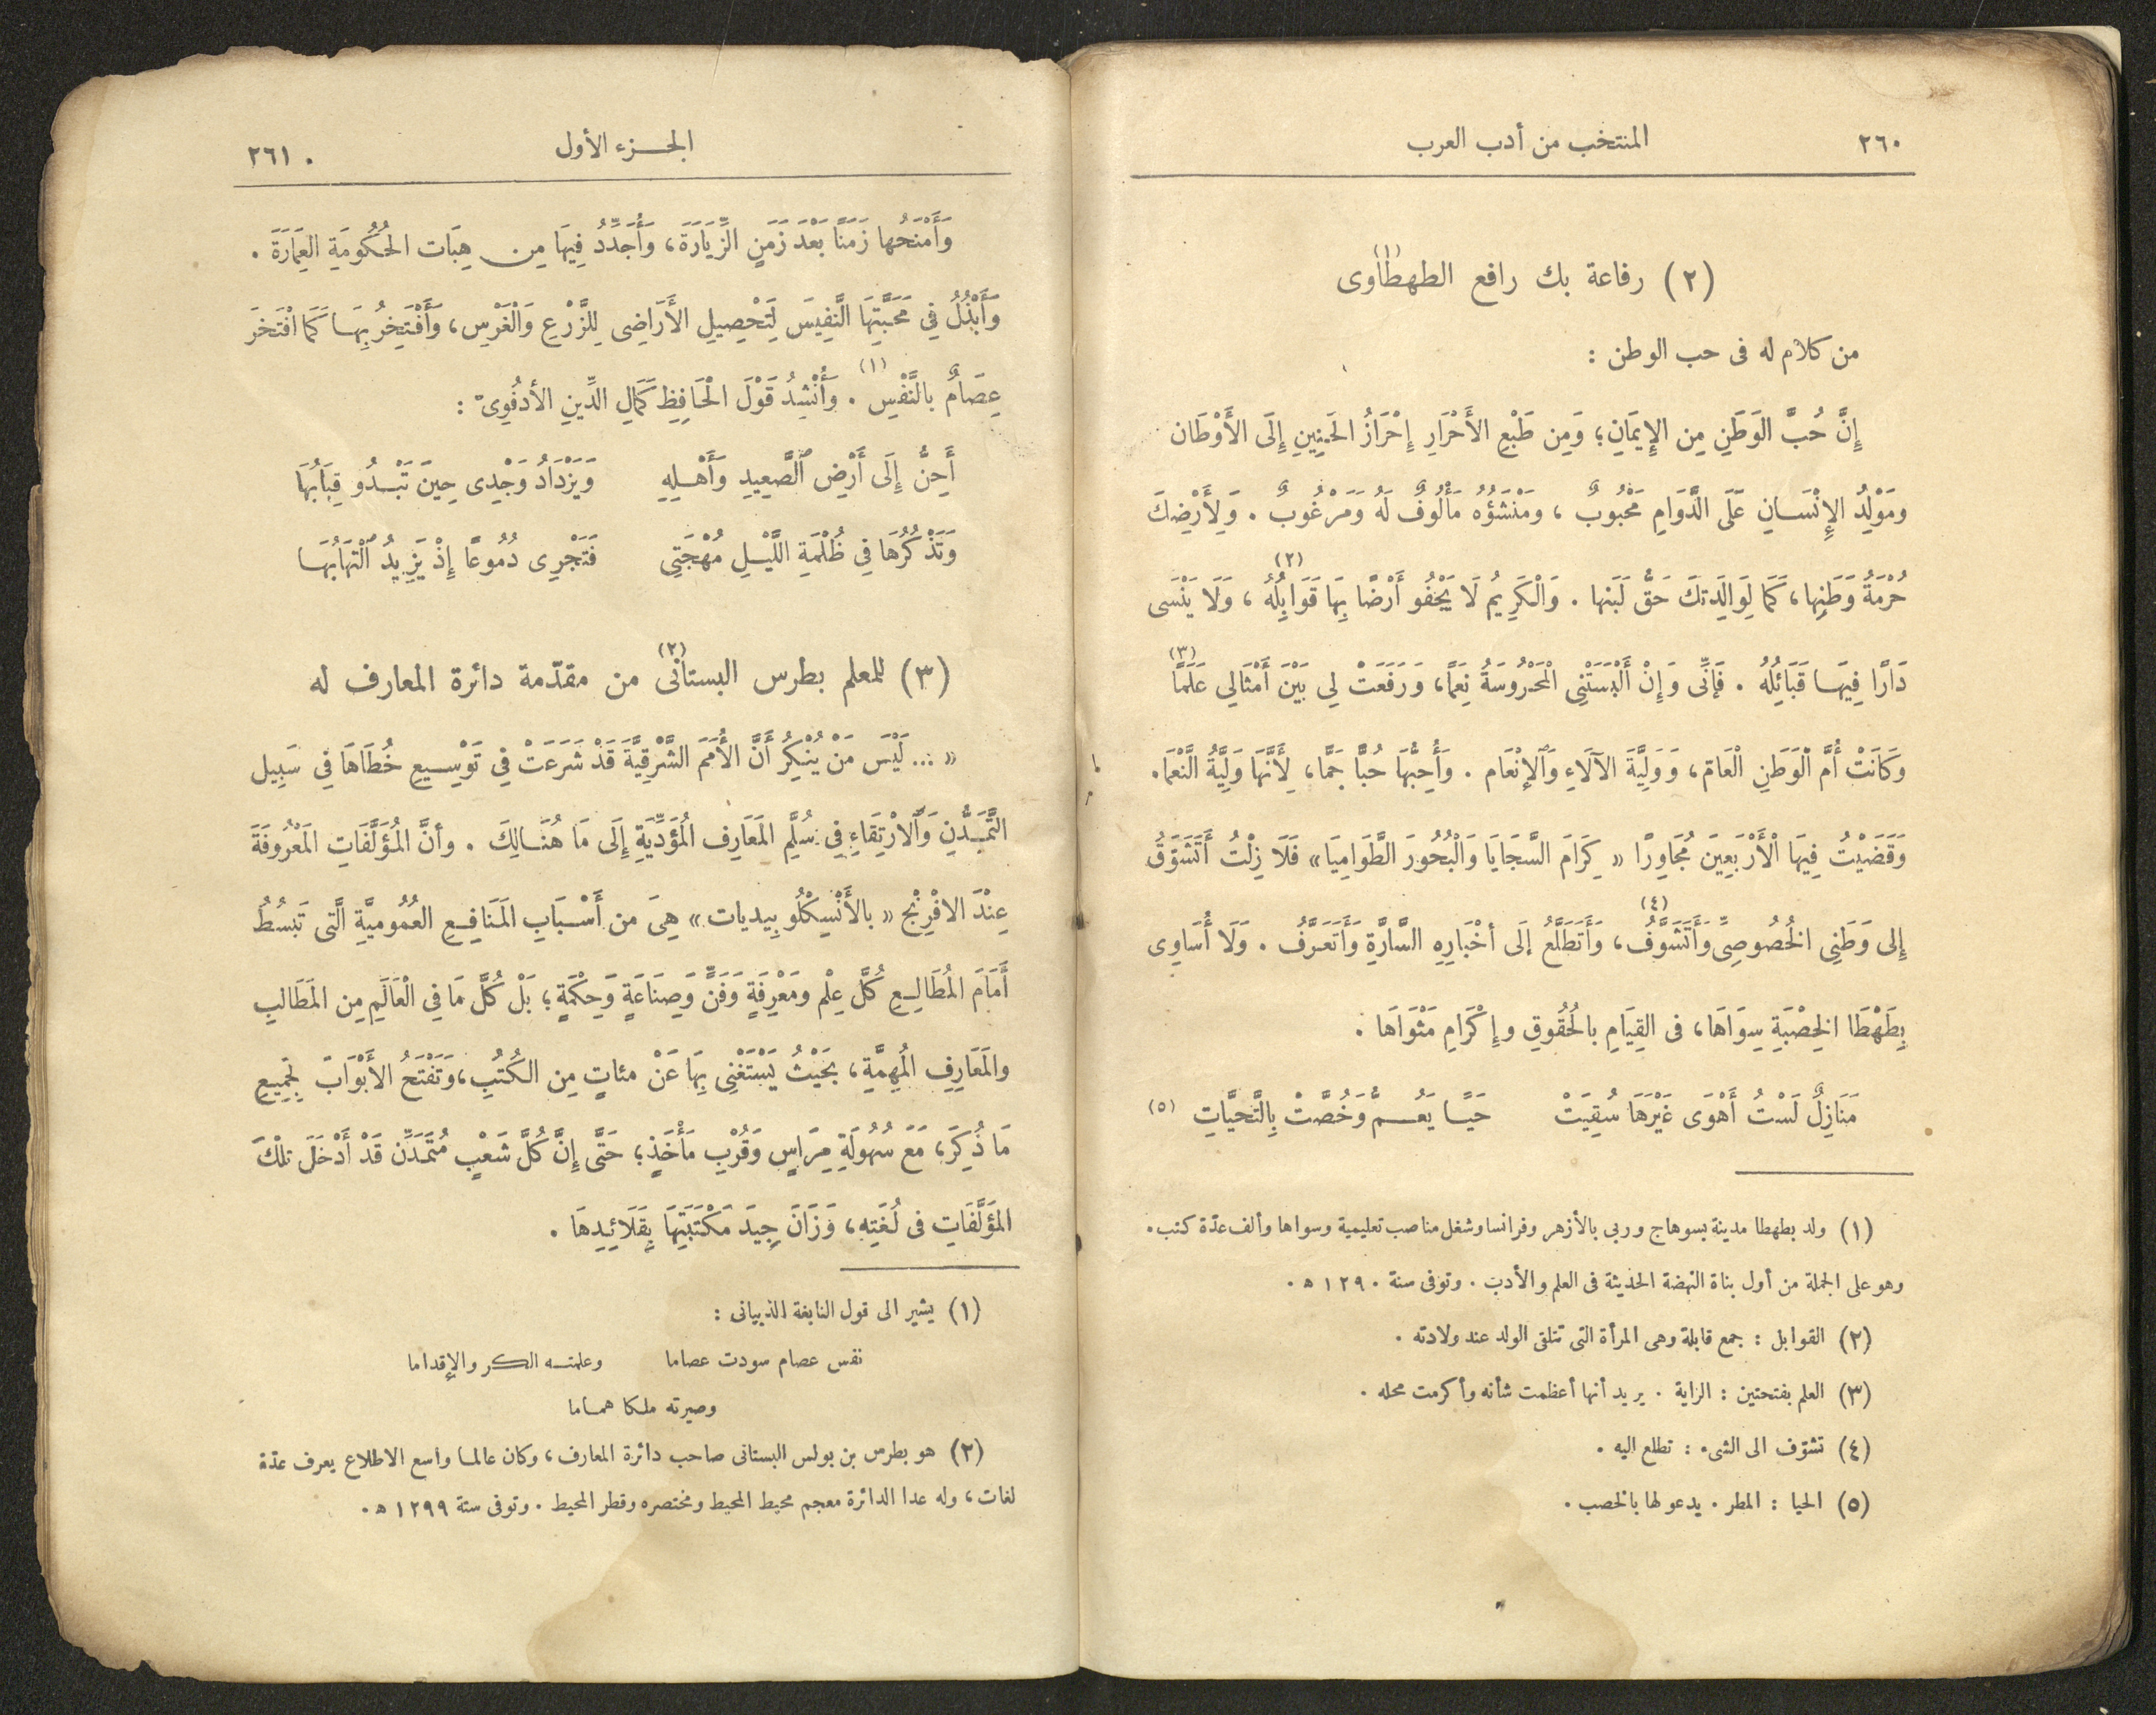 ٢٦٠ المنتخب من أدب العرب
(٢) رفاعة بك رافع الطهطاوى (١)
من كلام له فى حب الوطن :
إِنَّ حُبَّ الوَطَنِ مِن الإِيمَانِ؛ وَمِن طَبْعِ الأَحْرَارِ إِحْرَازُ الحَنِينِ إِلَى الأَوْطَان
ومَوْلِدُ الإِنْسَانِ عَلَى الدَّوَامِ مَحْبُوبٌ ، ومَنْشَؤُهُ مَأْلُوفٌ لَهُ وَمَرْغُوبٌ . وَلِأَرْضِكَ
حُرْمَةُ وَطَنِها، كَمَا لِوَالِدَتكَ حَقُّ لَبَنها . وَالْكَرِيمُ لَا يَجْفُو أَرْضًا بِهَا قَوَابِلُهُ (٢) ، وَلَا يَنْسَى
دَارًا فِيهَا قَبَائِلُهُ . فَإِنِّى وَإِنْ أَلْبَسَتْنِى الْمَحْرُوسَةُ نِعَمًا، وَرَفَعَتْ لِى بَيْنَ أَمْثَالِى عَلَمًا (٣)
وَكَانَتْ أُمَّ الْوَطَنِ الْعَامّ، وَوَلِيَّةَ الآلَاءِ وَالإِنْعَام . وَأُحِبُّهَا حُبًّا جَمًّا، لِأَنَّهَا وَلِيَّةُ النَّعْمَا.
وَقَضَيْتُ فِيهَا الْأَرْبَعِينَ مُجَاوِرًا « كِرَامَ السَّجَايَا وَالْبُحُورَ الطَّوَامِيَا » فَلَا زِلْتُ أَتَشَوَّقُ
إِلى وَطَنِى الخُصُوصِىِّ وَأَتَشَوَّفُ (٤) ، وَأَتَطَلَّعُ إِلَى أَخْبَارِهِ السَّارَّةِ وَأَتَعَرَّفُ . وَلَا أُسَاوِى
بِطَهْطَا الخِصْبَةِ سِوَاهَا، فى القِيَامِ بالحُقُوقِ وإِكْرَامِ مَثْوَاهَا .
مَنَازِلٌ لَسْتُ أَهْوَى غَيْرَهَا سُقِيَتْ حَيًا يَعُمُّ وَخُصَّتْ بِالتَّحِيَّاتِ (٥)
(١) ولد بطهطا مدينة بسوهاج وربى بالأزهر وفرانسا وشغل مناصب تعليمية وسواها وألف عدّة كتب.
وهو على الجملة من أول بناة النهضة الحديثة فى العلم والأدب . وتوفى سنة ١٢٩٠ ه .
(٢) القوابل : جمع قابلة وهى المرأة التى تتلقى الولد عند ولادته .
(٣) العلم بفتحتين : الراية . يريد أنها أعظمت شأنه وأكرمت محله .
(٤) تشوّف الى الشىء : تطلع اليه .
(٥) الحيا : المطر . يدعو لها بالخصب .
الجزء الأول ٢٦١
وَأَمْنَحُها زَمَنًا بَعْدَ زَمَنٍ الزِّيَارَةَ ، وَأُجَدِّدُ فِيهَا مِن هِبَات الحُكُومَةِ العِمَارَةَ .
وَأَبْذُلُ فِي مَحَبَّتِهَا النَّفِيسَ لِتَحْصِيلِ الأَرَاضِى لِلزَّرْعِ وَالْغَرْسِ، وَأَفْتَخِرُ بِهَا كَمَا افْتَخَرَ
عِصَامٌ بالنَّفْسِ (١) . وَأُنْشِدُ قَوْلَ الْحَافِظِ كَمَالِ الدِّينِ الأُدفُوِىّ :
أَحِنُّ إِلَى أَرْضِ الصَّعِيدِ وَأَهْلِهِ وَيَزْدَادُ وَجْدِى حِينَ تَبْدُو قِبَابُهَا
وَتَذْكُرُهَا فِي ظُلْمَةِ اللَّيْلِ مُهْجَتِى فَتَجْرِى دُمُوعًا إِذْ يَزِيدُ الْتِهَابُهَا
(٣) للمعلم بطرس البستانى (٢) من مقدّمة دائرة المعارف له
« ... لَيْسَ مَنْ يُنْكِرُ أَنَّ الأُمَمَ الشَّرْقِيَّةَ قَدْ شَرَعَتْ فِي تَوْسِيعِ خُطَاهَا فِي سَبِيل
التَّمَدُّنِ وَالارْتِقَاءِ فِي سُلَّمِ المَعَارِف المُؤَدِّيَةِ إِلَى مَا هُنَالِكَ . وأنَّ المُؤَلَّفَاتِ المَعْرُوفَةَ
عِنْدَ الافْرِنْج « بالأَنْسِكْلُوبِيديات » هِىَ من أَسْبَابِ المَنَافِعِ العُمُوميَّةِ الَّتى تَبْسُطُ
أَمَامَ المُطَالِعِ كُلَّ عِلْم ومَعْرِفَةٍ وَفَنٍّ وَصِنَاعَةٍ وَحِكْمَةٍ ؛ بَلْ كُلَّ مَا فِي الْعَالَمِ مِن المَطَالبِ
والمَعَارِفِ المُهِمَّةِ ، بحَيْثُ يَسْتَغْنِى بِهَا عَنْ مئاتٍ مِن الكُتُبِ، وَتَفْتَحُ الأَبْوَابَ لِجَمِيعِ
مَا ذُكِرَ، مَعَ سُهُولَةِ مِرَاسٍ وَقُرْبِ مَأْخَذٍ؛ حَتَّى إِنَّ كُلَّ شَعْبٍ مُتَمَدِّن قَدْ أَدْخَلَ تلْكَ
المُؤَلَّفَاتِ فى لُغَتِهِ، وَزَانَ جِيدَ مَكْتَبَتِهَا بِقَلَائِدِهَا .
(١) يشير الى قول النابغة الذبيانى :
نفس عصام سودت عصاما وعلمته الكر والإقداما
وصيرته ملكا هماما
(٢) هو بطرس بن بولس البستانى صاحب دائرة المعارف ، وكان عالما واسع الاطلاع يعرف عدّة
لغات ، وله عدا الدائرة معجم محيط المحيط ومختصره وقطر المحيط . وتوفى سنة ١٢٩٩ ه .